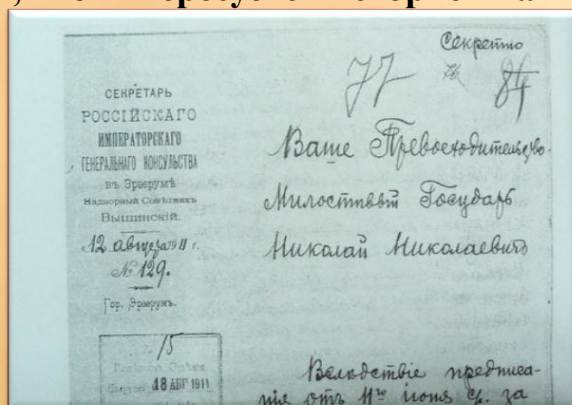 Секретно
77 84
СЕКРЕТАРЬ
РОССІЙСКАГО
ИМПЕРАТОРСКАГО
ГЕНЕРАЛЬНАГО КОНСУЛЬСТВА
въ Эрзерумѣ
Надворный Совѣтникъ
Вышинскій.
12 августа 1911 г.
№ 129.
Гор. Эрзерумъ.
15
18 АВГ 1911
Ваше Превосходительство
Милостивый Государь
Николай Николаевичъ
Вслѣдствіе предписа-
нія отъ 11го іюня с/г. за